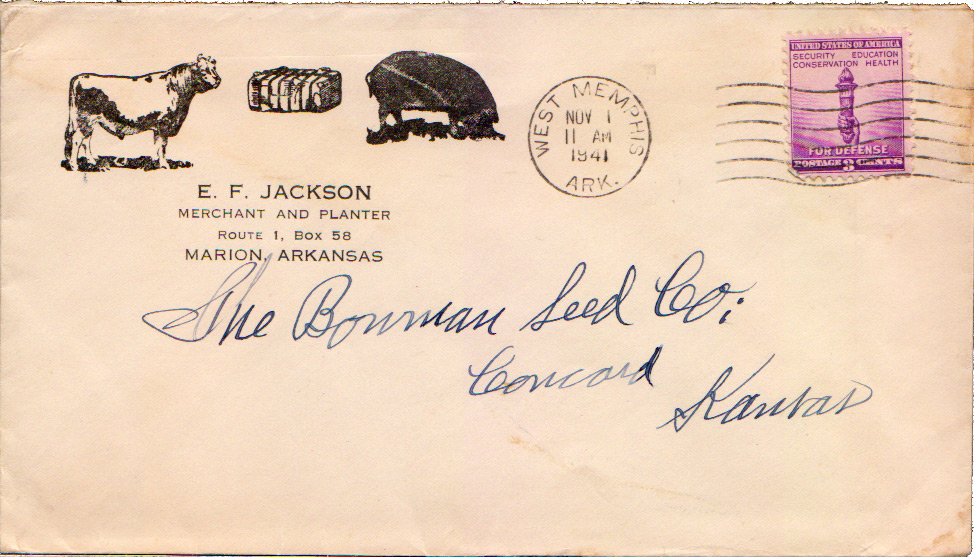 E. F. JACKSON
MERCHANT AND PLANTER
ROUTE 1, BOX 58
MARION, ARKANSAS
WEST MEMPHIS
NOV 1
11 AM
1941
ARK.
UNITED STATES OF AMERICA
SECURITY EDUCATION
CONSERVATION HEALTH
FOR DEFENSE
POSTAGE 3 CENTS
The Bowman Seed Co:
Concord
Kansas